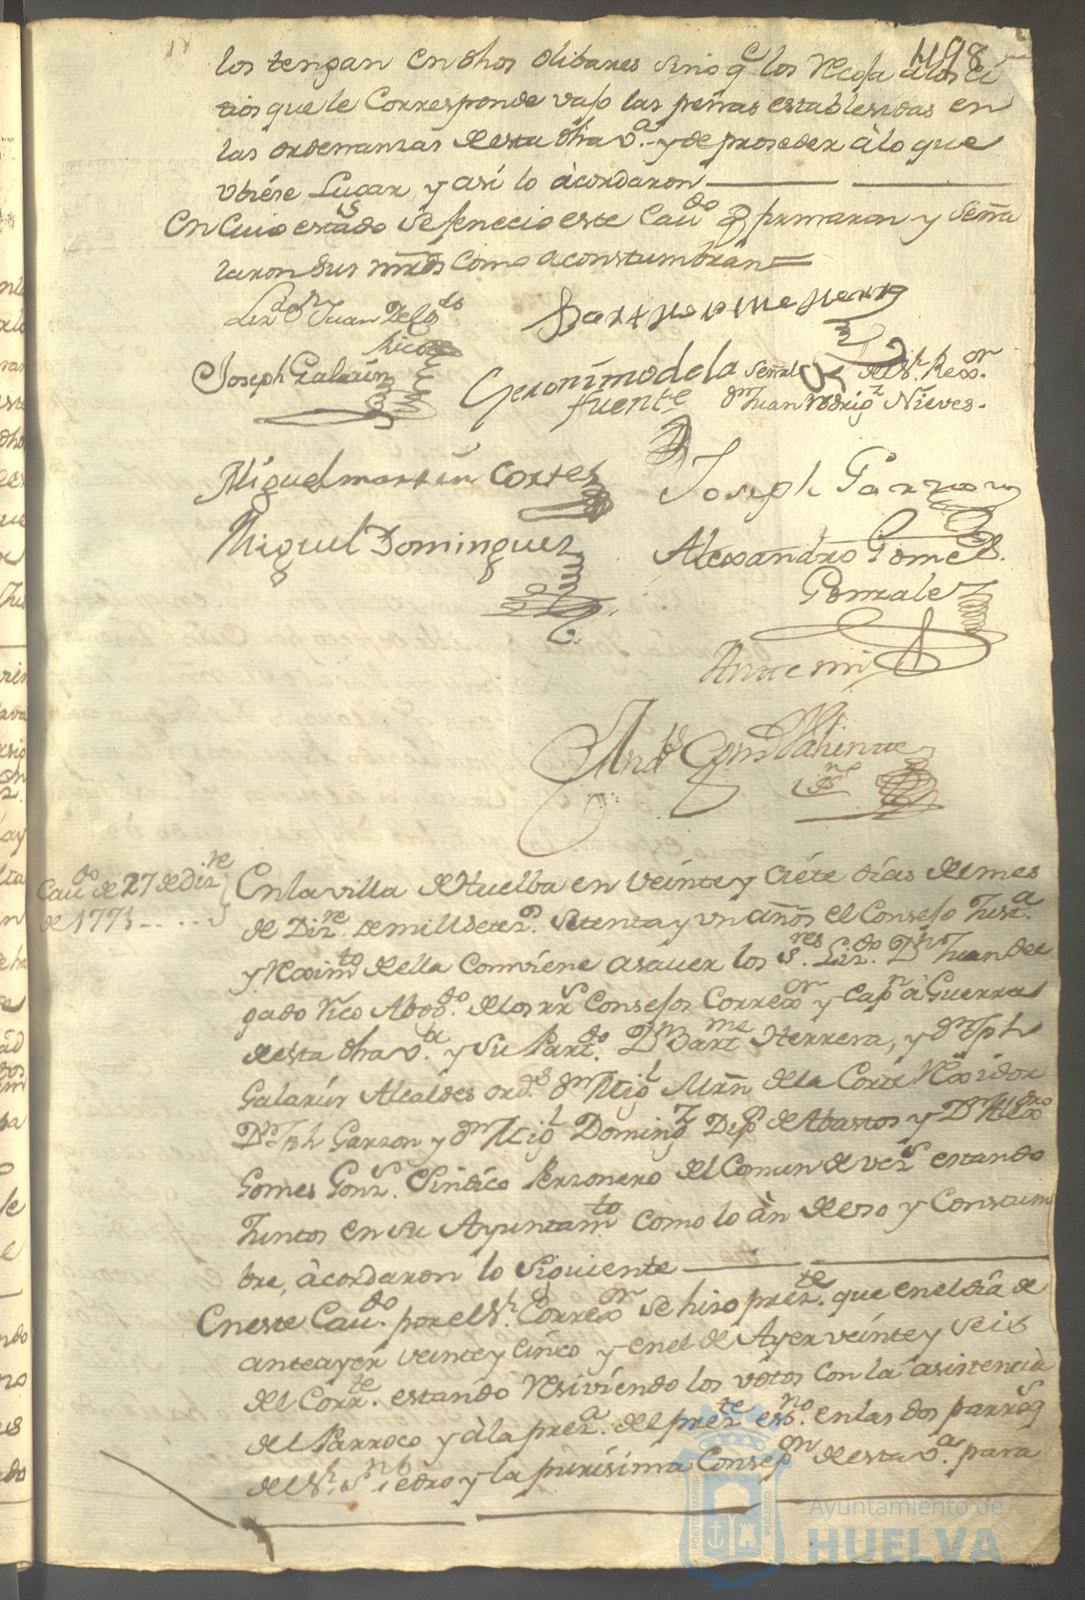 498
los tengan en dhos olibares sino qe los Recoja a los ci
tios que le Corresponde vajo las penas establesidas en
las ordenanzas de esta dha va. y de proseder à lo que
vbiése Lugar, y así lo àcordaron
En Cuio estado se fenecio este Caudo q firmaron y Señа
laron Sus mrds como acostumbran=
Lizdo Dn Juan Delgdo
Rico
Bartholome Herrera
Joseph Galarin
Geronimo de la
fuente
Señal de el Sr. Rexor.
Dn Juan Rodrigz Nieves.
Miguel martin Cortes
Joseph Garzon
Miguel Dominguez
Alexandro Gomes.
Gonzalez
Ante mi
Andrs Gom Valiente
Caudo de 27 de Dize
de 1771
En la villa de Huelba en veinte y ciéte días de el mes
de Dize. de mill setez. setenta y vn años el Consejo Justa.
y Reximto de ella conviene asaver los Sres. Lizdo. Dn Juan del
gado Rico Abogdo. de los rrs Consejos Correxor y Capn à Guerra
de esta dha va. y su Partdo. Dn Bartme Herrera, y Dn Jph
Galarin Alcaldes ords Dn Migl Mrn de la Corte Rexidor
Dn Jph Garzon y Dn Migl Domingz Dips de Abastos y Dn Alexdro
Gomes Gonz. Sindico Perzonero de el Comun de vezs estando
Juntos en su Ayuntamto como lo àn de uso y Constum
bre, àcordaron lo Siguiente
En este Caudo. por el Sr. Correxor se hiso prezte. que en el día de
anteayer veinte y cinco y en el de Ayer veinte y seis
de el Corrte. estando Resiviendo los votos con la asistencia
de el Parroco y à la preza. de el prezte esno. en las dos parroqs
de el Sr. Sn Pedro y la purísima Consepon de esta va. para
Ayuntamiento de
HUELVA